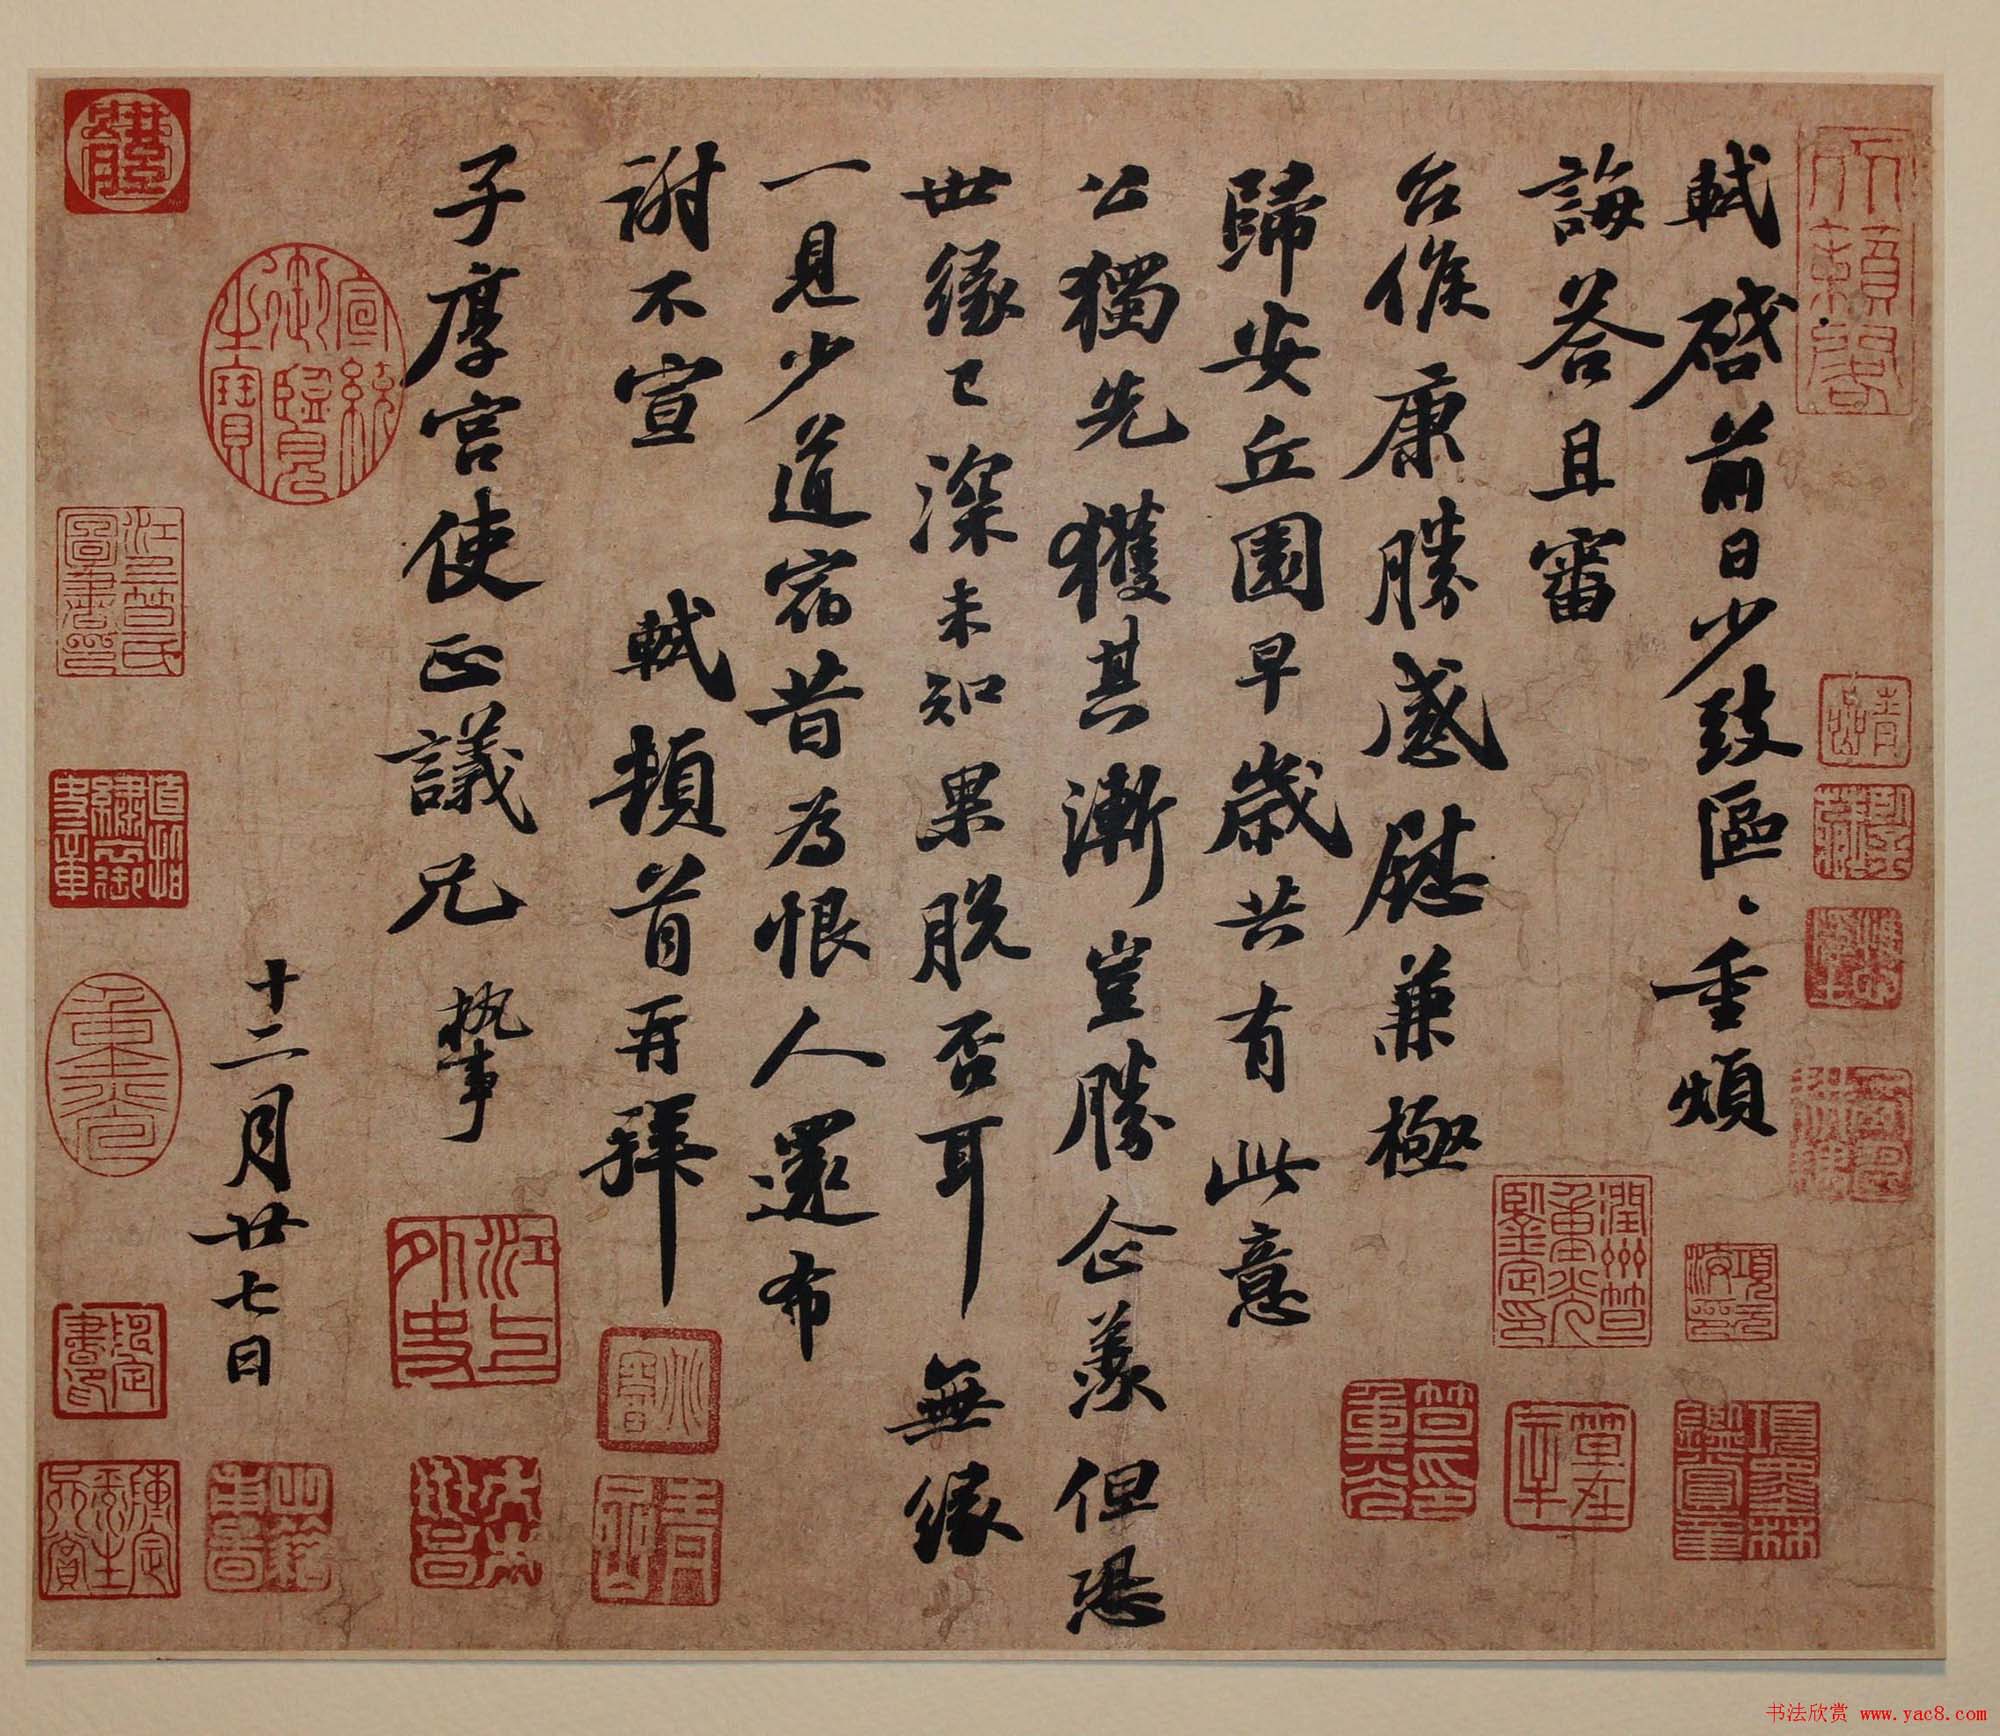 軾啓前日少致區〻重煩
誨荅且審
台候康勝感慰兼極
歸安丘園早歲共有此意
公獨先獲其漸豈勝企羨但恐
世緣已深未知果脱否耳無緣
一見少道宿昔為恨人還布
謝不宣 軾頓首再拜
子厚宮使正議兄執事
十二月廿七日
天籟閣
宣統御覽之寶
江上外史
书法欣赏 www.yac8.com